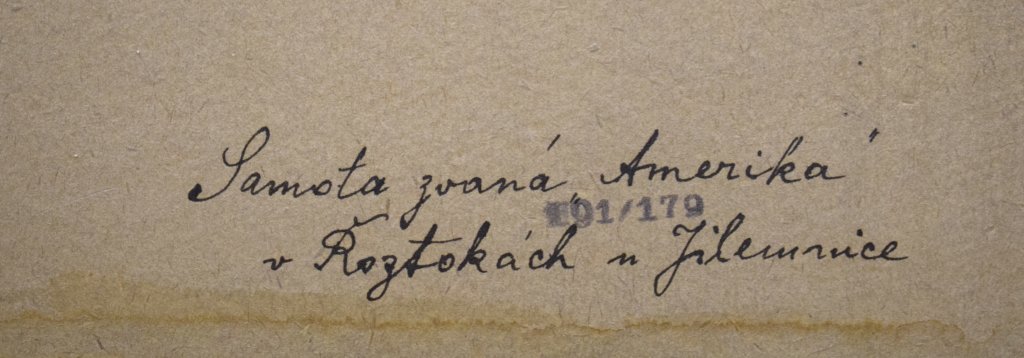 Samota zvaná „Amerika"
101/179
v Roztokách u Jilemnice